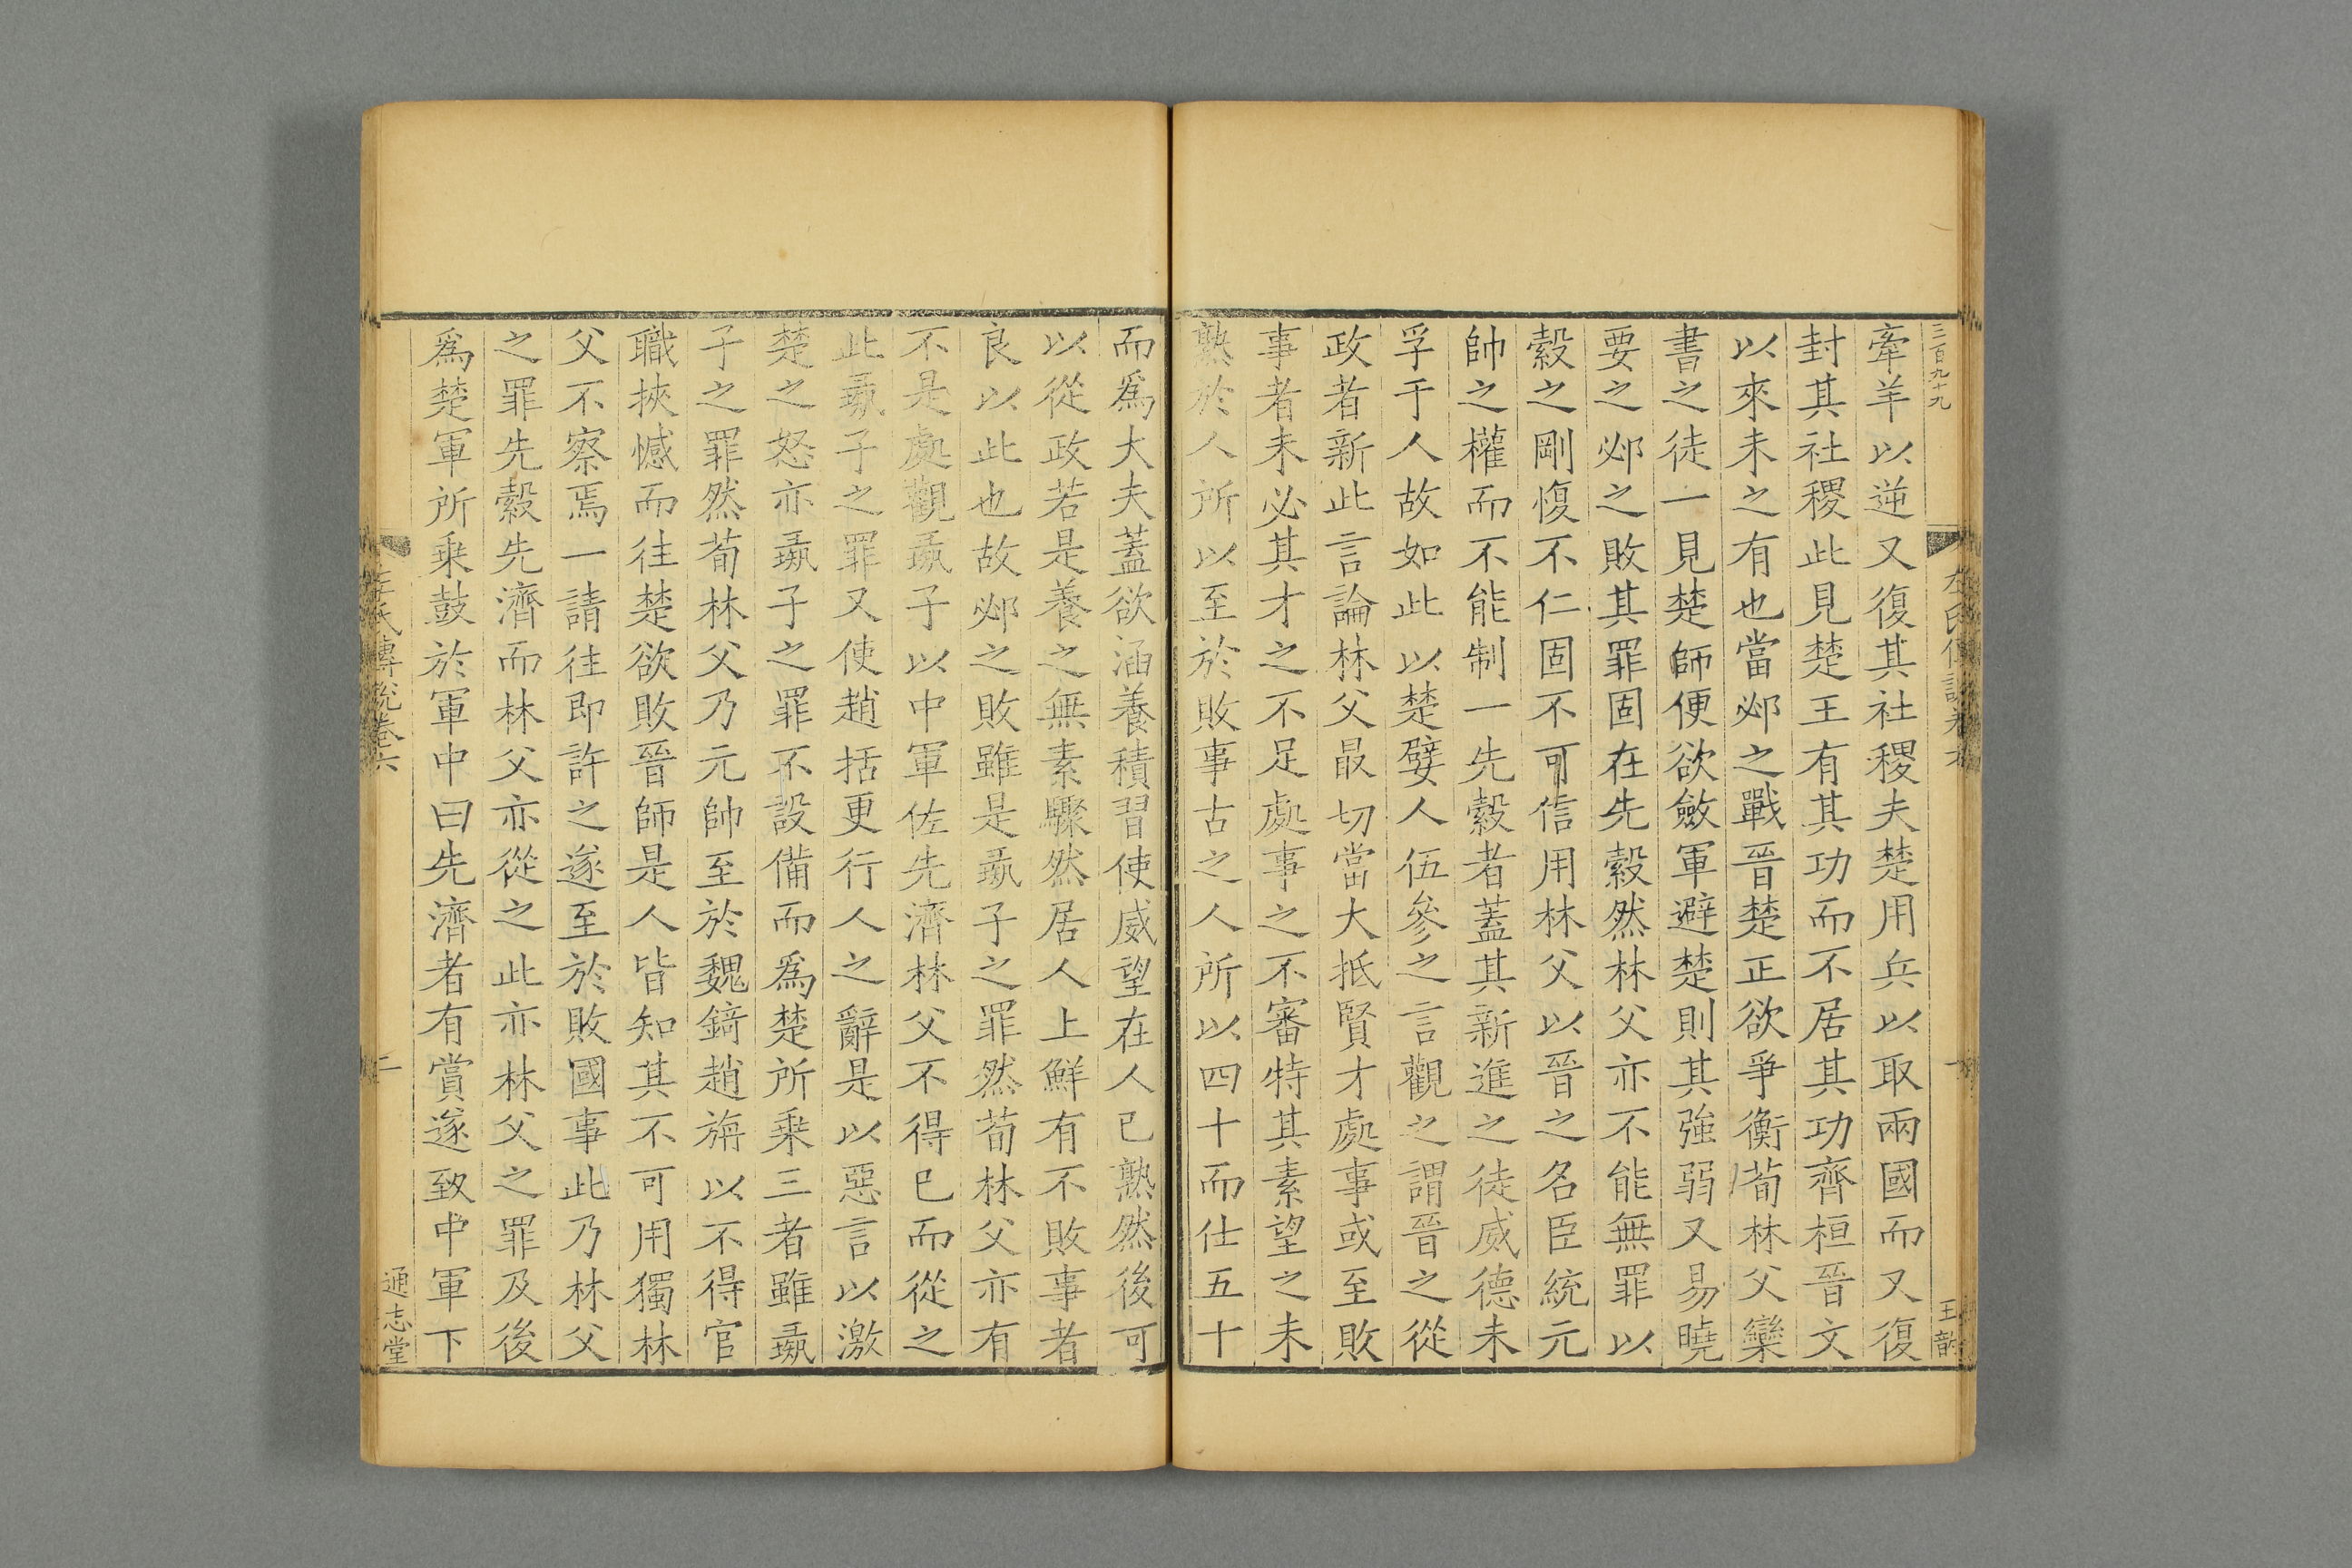 三百九十九
左氏傳說卷六
一
王
牽羊以逆又復其社稷夫楚用兵以取兩國而又復
封其社稷此見楚王有其功而不居其功齊桓晉文
以來未之有也當邲之戰晉楚正欲爭衡荀林父欒
書之徒一見楚師便欲斂軍避楚則其強弱又易曉
要之邲之敗其罪固在先縠然林父亦不能無罪以
縠之剛愎不仁固不可信用林父以晉之名臣統元
帥之權而不能制一先縠者蓋其新進之徒威德未
孚于人故如此以楚嬖人伍參之言觀之謂晉之從
政者新此言論林父最切當大抵賢才處事或至敗
事者未必其才之不足處事之不審特其素望之未
熟於人所以至於敗事古之人所以四十而仕五十
而爲大夫蓋欲涵養積習使威望在人已熟然後可
以從政若是養之無素驟然居人上鮮有不敗事者
良以此也故邲之敗雖是彘子之罪然荀林父亦有
不是處觀彘子以中軍佐先濟林父不得已而從之
此彘子之罪又使趙括更行人之辭是以惡言以激
楚之怒亦彘子之罪不設備而爲楚所乗三者雖彘
子之罪然荀林父乃元帥至於魏錡趙旃以不得官
職挾憾而往楚欲敗晉師是人皆知其不可用獨林
父不察焉一請往即許之遂至於敗國事此乃林父
之罪先縠先濟而林父亦從之此亦林父之罪及後
爲楚軍所乗鼓於軍中曰先濟者有賞遂致中軍下
左氏傳說卷六
二
通志堂